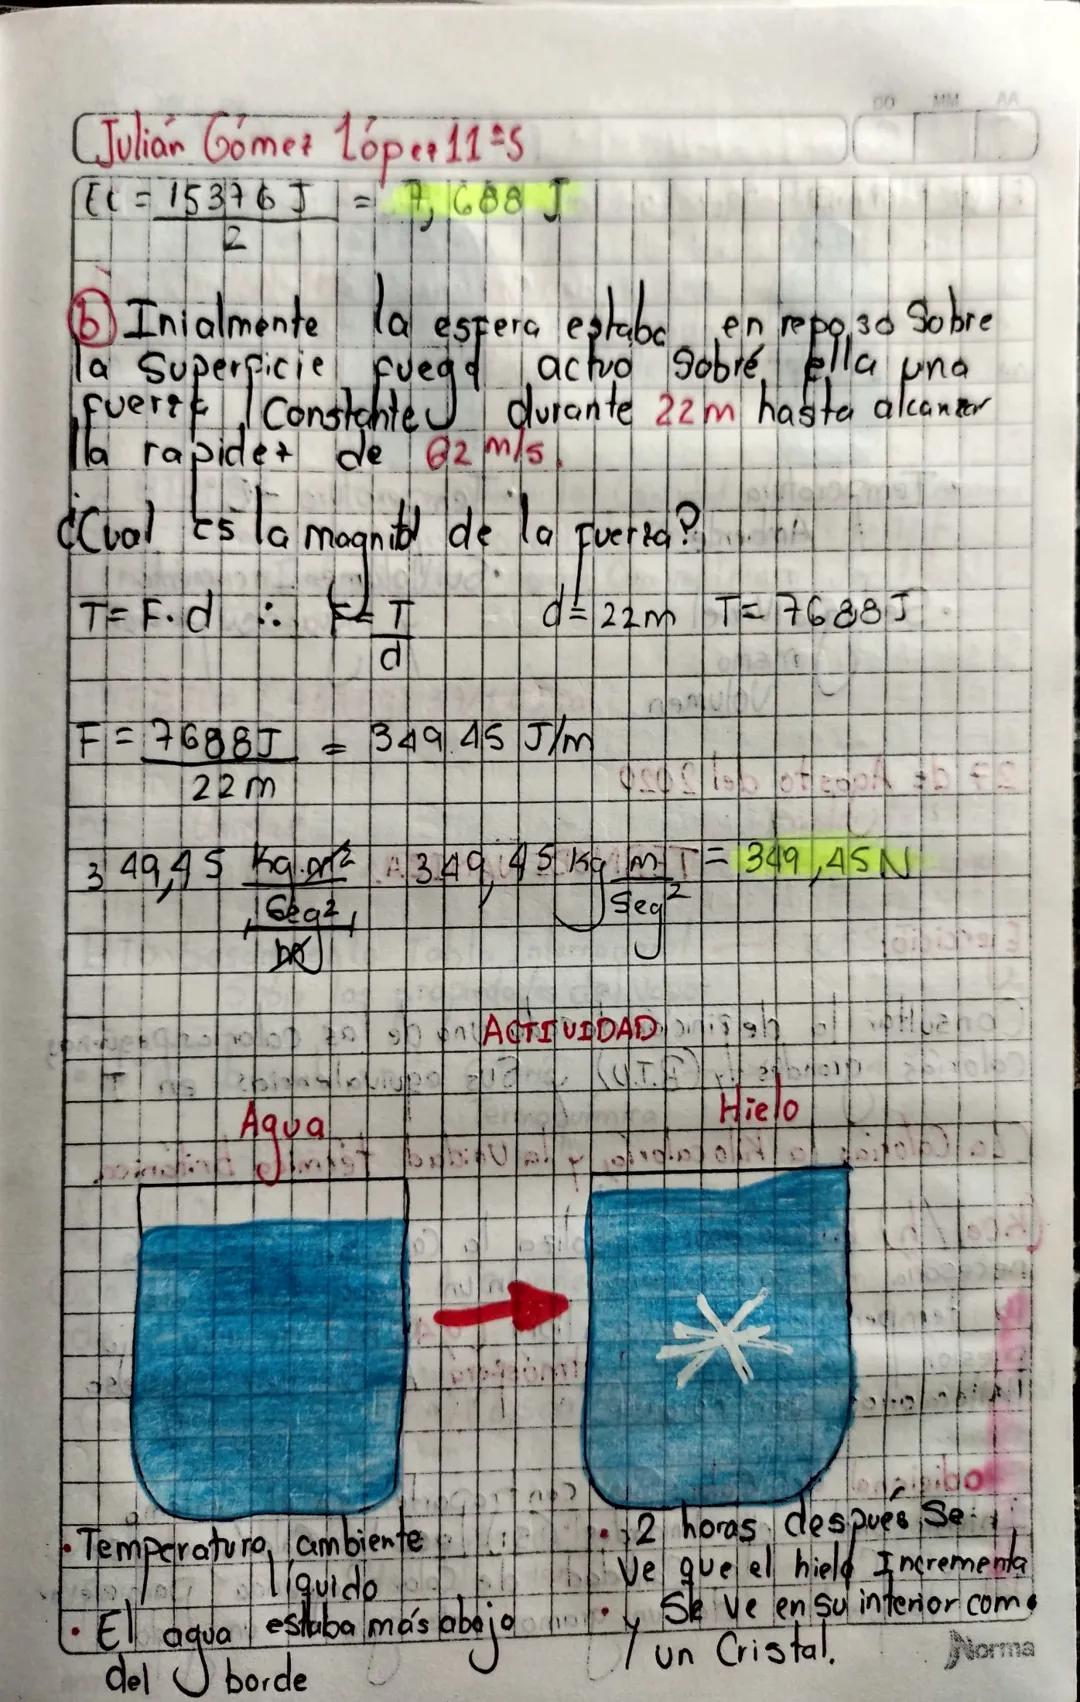 DD MM AA
Julián Gómez López 11°S
Ec = 15376 J / 2 = 7,688 J
b) Inialmente la esfera estaba en reposo Sobre
la Superficie fuego actuo Sobré ella una
fuerza Constante durante 22m hasta alcanzar
la rapidez de 62 m/s.
¿Cual es la magnitd de la fuerza?
T = F · d ∴ F = T / d d = 22m T = 7688J
F = 7688J / 22m = 349.45 J/m
349,45 Kg.m² / Seg² / m 349,45 Kg m / Seg² = 349,45N
ACTIVIDAD
Agua Hielo
· Temperatura ambiente
líquido
· El agua estaba más abajo
del borde
· 2 horas después Se
Ve que el hielo Incrementa
· y Se Ve en su interior como
un Cristal.
Norma